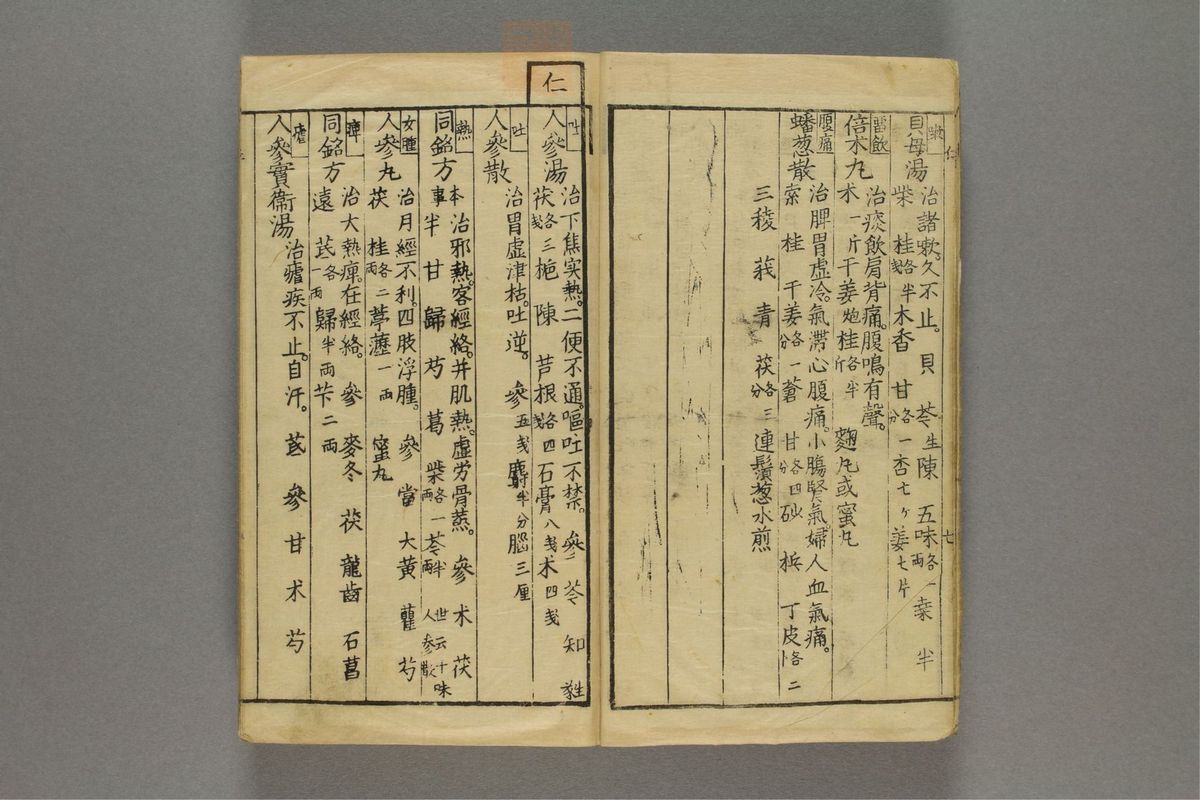 嗽
貝母湯
治諸嗽久不止。貝 苓生陳 五味各一両桒半
柴 桂各半戔木香 甘各一分杏七ヶ姜七片
畱飲
倍朮丸
治痰飲肩背痛。腹鳴有聲。
朮一斤干姜炮桂各半斤 麹丸或蜜丸
腹痛
蟠葱散
治脾胃虚冷。氣滞心腹痛。小膓腎氣。婦人血氣痛。
索 桂 干姜各一分蒼 甘各四分砂 梹 丁皮各二
三稜 莪 青 茯各三分連鬚葱水煎
七
仁
吐
人參湯
治下焦实熱。二便不通。嘔吐不禁。參 苓 知
茯各三戔梔 陳 芦根各四戔石膏八戔朮四戔
吐
人參散
治胃虚津枯。吐逆。參五戔麝半分腦三厘
熱
同銘方
本事 治邪熱。客經絡。并肌熱。虚労骨蒸。參 朮 茯
半 甘 歸 芍 葛 柴各一両芩半両 世云十味人參散
女腫
人參丸
治月經不利。四肢浮腫。參 當 大黄 瞿 芍
茯 桂各二両葶藶一両 蜜丸
痺
同銘方
治大熱痺。在經絡。參 麥冬 茯 龍齒 石菖
遠 芪各一両歸半両芐二両
瘧
人參實衞湯
治瘧疾不止。自汗。芪 參 甘 朮 芍